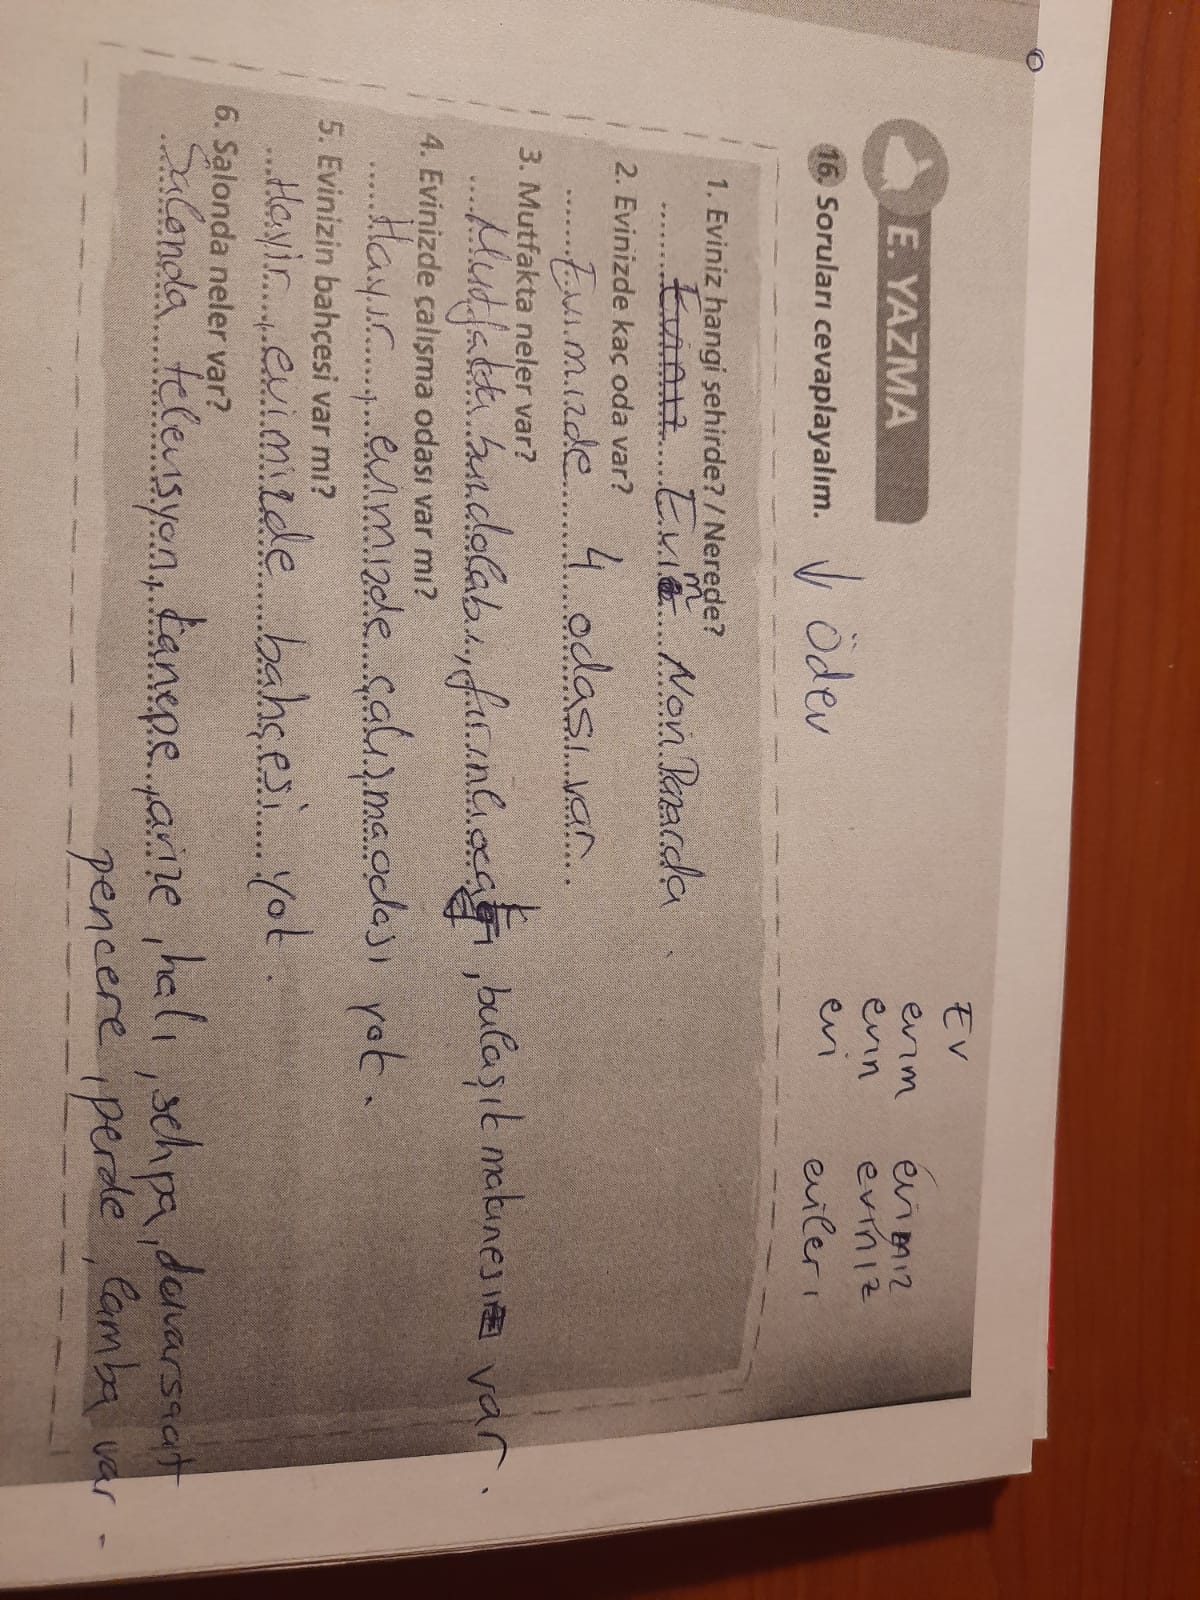 E. YAZMA
16. Soruları cevaplayalım. ↓ Ödev
Ev
evim evimiz
evin eviniz
evi evleri
1. Eviniz hangi şehirde? / Nerede?
Evim Non Pazarda.
2. Evinizde kaç oda var?
Evimizde 4 odası var.
3. Mutfakta neler var?
Mutfakta buzdolabı, fırınlı ocak, bulaşık makinesi var.
4. Evinizde çalışma odası var mı?
Hayır, evimizde çalışma odası yok.
5. Evinizin bahçesi var mı?
Hayir, evimizde bahçesi yok.
6. Salonda neler var?
Salonda televisyon, kanepe, avize, halı, sehpa, duvarsaat
pencere, perde, lamba var.